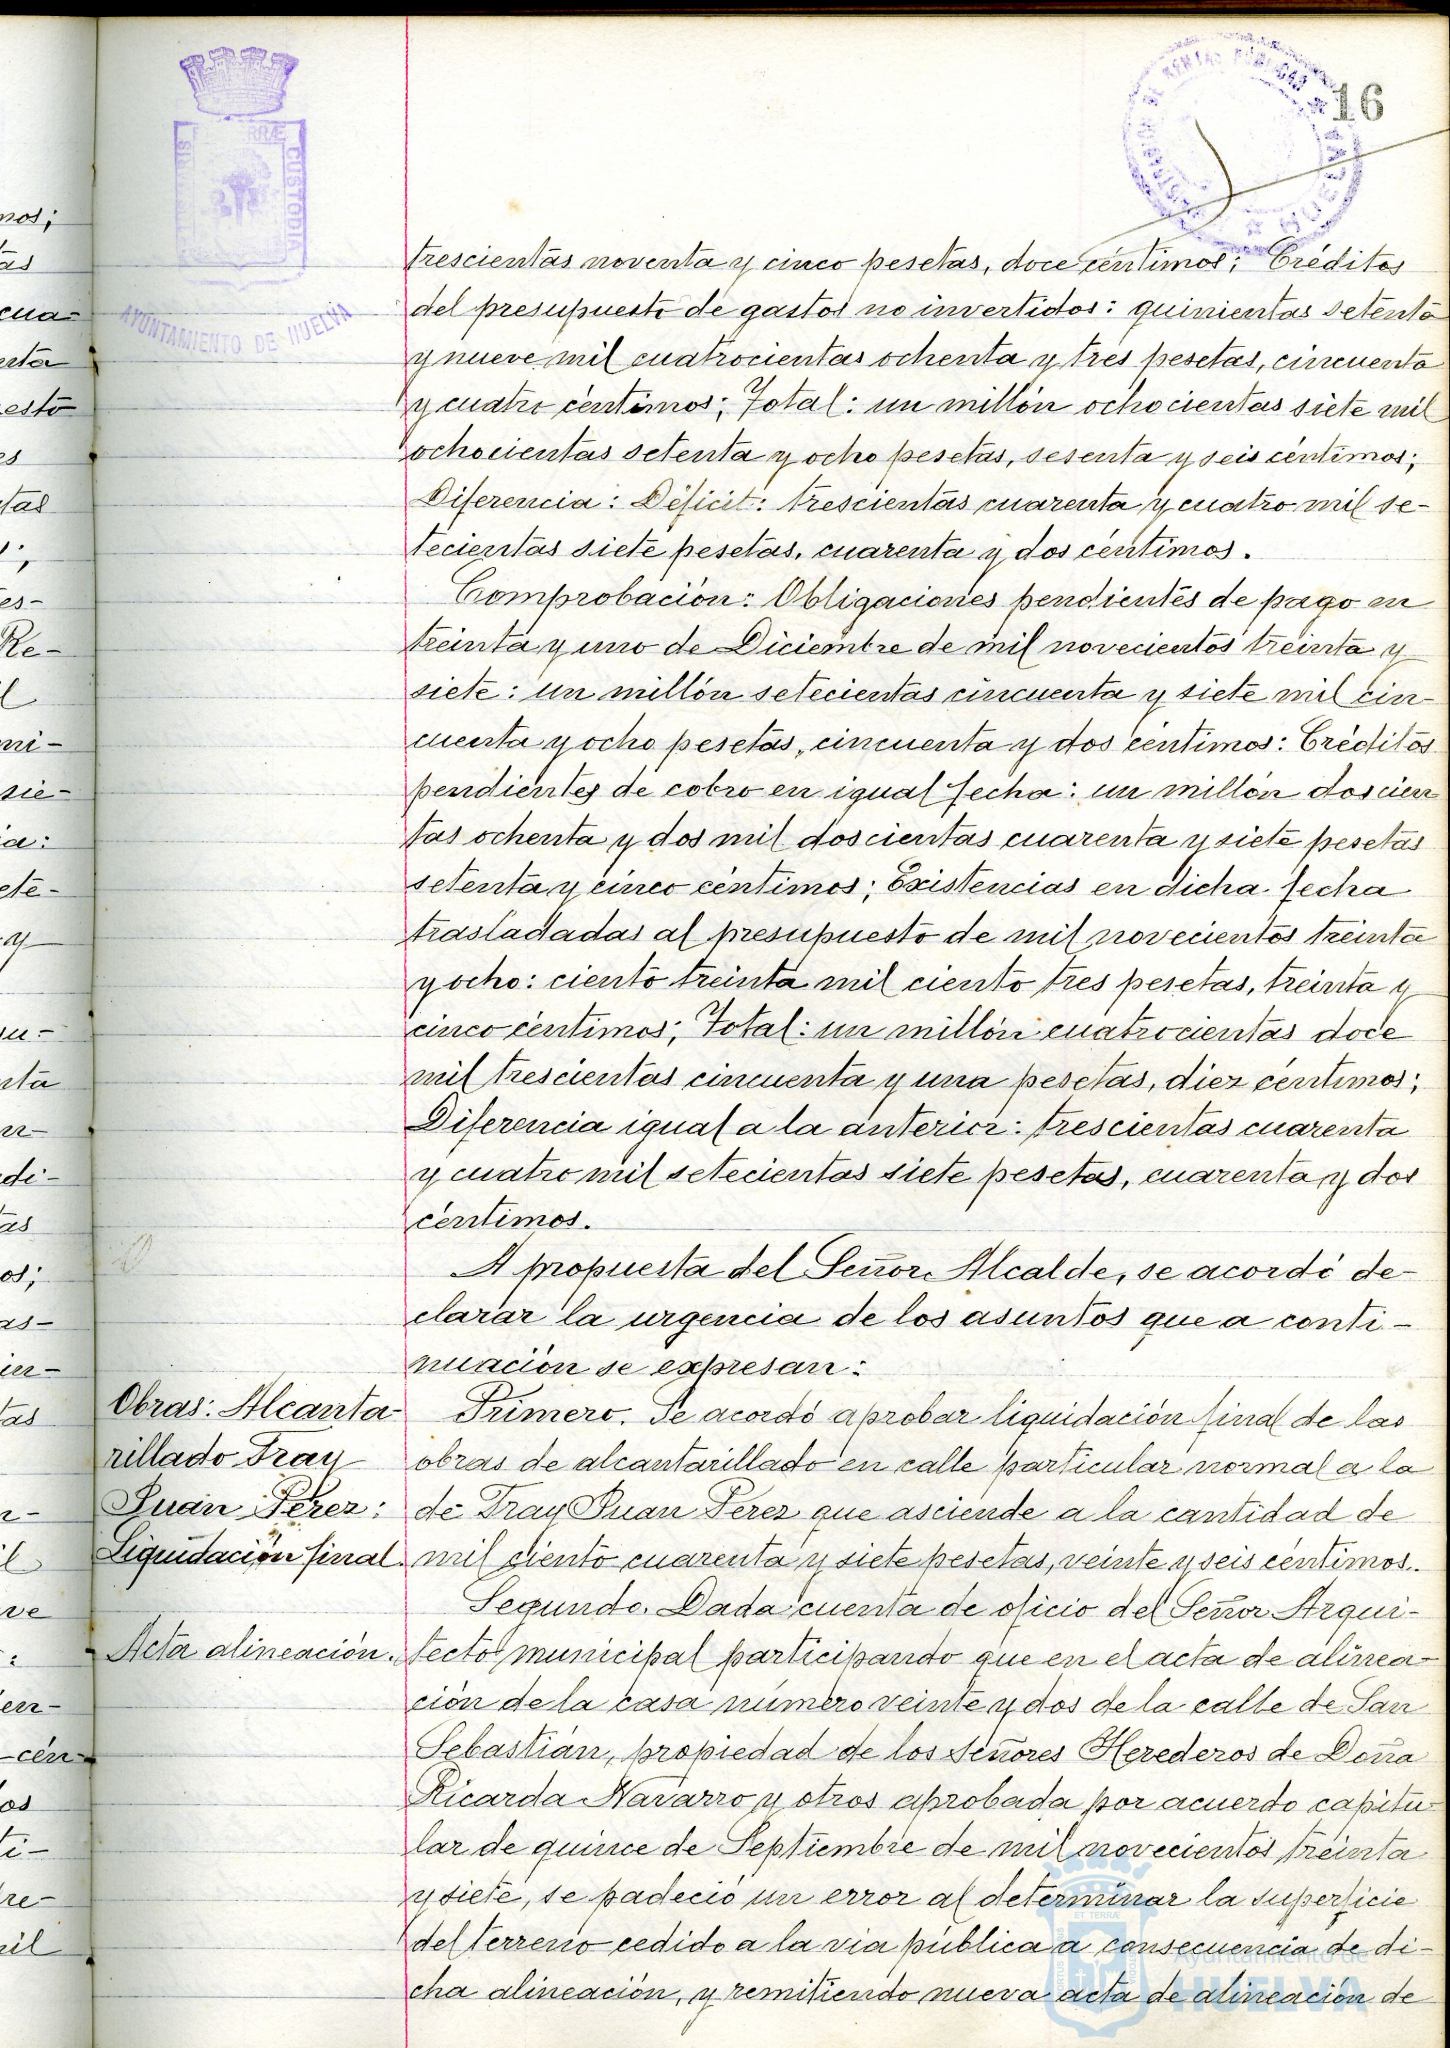 16
AYUNTAMIENTO DE HUELVA
CUSTODIA
trescientas noventa y cinco pesetas, doce céntimos; Créditos
del presupuesto de gastos no invertidos: quinientas setenta
y nueve mil cuatrocientas ochenta y tres pesetas, cincuenta
y cuatro céntimos; Total: un millón ochocientas siete mil
ochocientas setenta y ocho pesetas, sesenta y seis céntimos;
Diferencia: Déficit: trescientas cuarenta y cuatro mil se-
tecientas siete pesetas, cuarenta y dos céntimos.
Comprobación: Obligaciones pendientes de pago en
treinta y uno de Diciembre de mil novecientos treinta y
siete: un millón setecientas cincuenta y siete mil cin-
cuenta y ocho pesetas, cincuenta y dos céntimos: Créditos
pendientes de cobro en igual fecha: un millón doscien
tas ochenta y dos mil doscientas cuarenta y siete pesetas
setenta y cinco céntimos; Existencias en dicha fecha
trasladadas al presupuesto de mil novecientos treinta
y ocho: ciento treinta mil ciento tres pesetas, treinta y
cinco céntimos; Total: un millón cuatrocientas doce
mil trescientas cincuenta y una pesetas, diez céntimos;
Diferencia igual a la anterior: trescientas cuarenta
y cuatro mil setecientas siete pesetas, cuarenta y dos
céntimos.
A propuesta del Señor Alcalde, se acordó de-
clarar la urgencia de los asuntos que a conti-
nuación se expresan:
Obras: Alcanta-
rillado Fray
Juan Perez:
Liquidación final.
Primero. Se acordó aprobar liquidación final de las
obras de alcantarillado en calle particular normal a la
de Fray Juan Perez que asciende a la cantidad de
mil ciento cuarenta y siete pesetas, veinte y seis céntimos.
Acta alineación.
Segundo. Dada cuenta de oficio del Señor Arqui-
tecto municipal participando que en el acta de alinea-
ción de la casa número veinte y dos de la calle de San
Sebastián, propiedad de los señores Herederos de Doña
Ricarda Navarro y otros aprobada por acuerdo capitu-
lar de quince de Septiembre de mil novecientos treinta
y siete, se padeció un error al determinar la superficie
del terreno cedido a la via pública a consecuencia de di-
cha alineación, y remitiendo nueva acta de alineación de
Ayuntamiento de
HUELVA